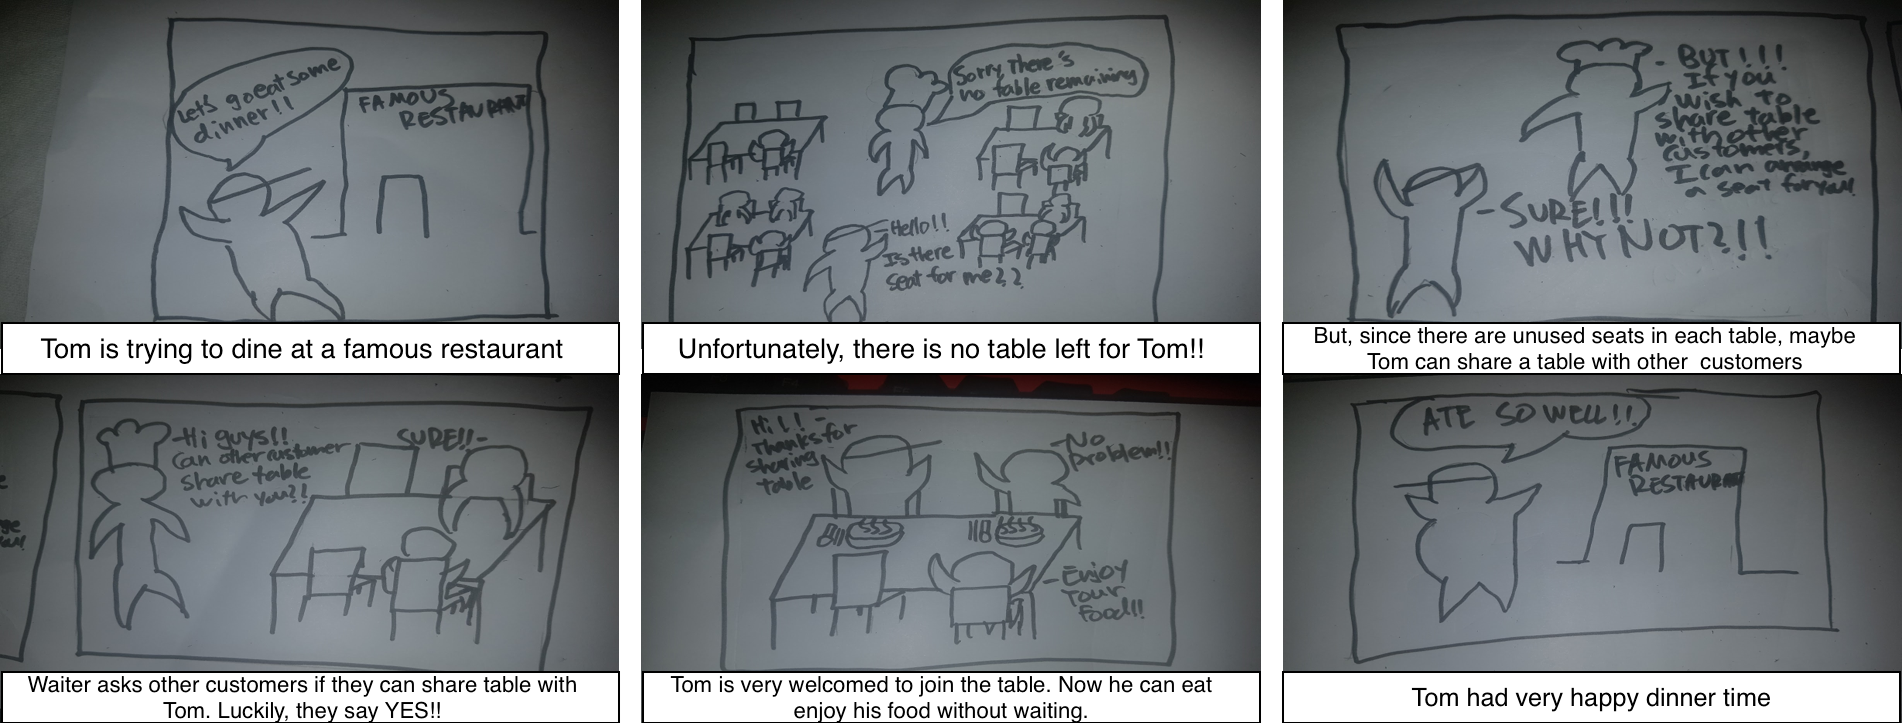 Let's go eat some
dinner!!
FAMOUS
RESTAURANT
Tom is trying to dine at a famous restaurant
Sorry, There's
no table remaining
Hello!!
Is there
seat for me??
Unfortunately, there is no table left for Tom!!
- BUT!!!
If you
wish to
share table
with other
customers,
I can arrange
a seat for you!
- SURE!!!
WHY NOT?!!
But, since there are unused seats in each table, maybe
Tom can share a table with other customers
- Hi guys!!
Can other customer
share table
with you??
SURE!! -
Waiter asks other customers if they can share table with
Tom. Luckily, they say YES!!
Hi!! -
Thanks for
sharing
table
- No
problem!!
- Enjoy
Your
food!!
Tom is very welcomed to join the table. Now he can eat
enjoy his food without waiting.
ATE SO WELL!!
FAMOUS
RESTAURANT
Tom had very happy dinner time